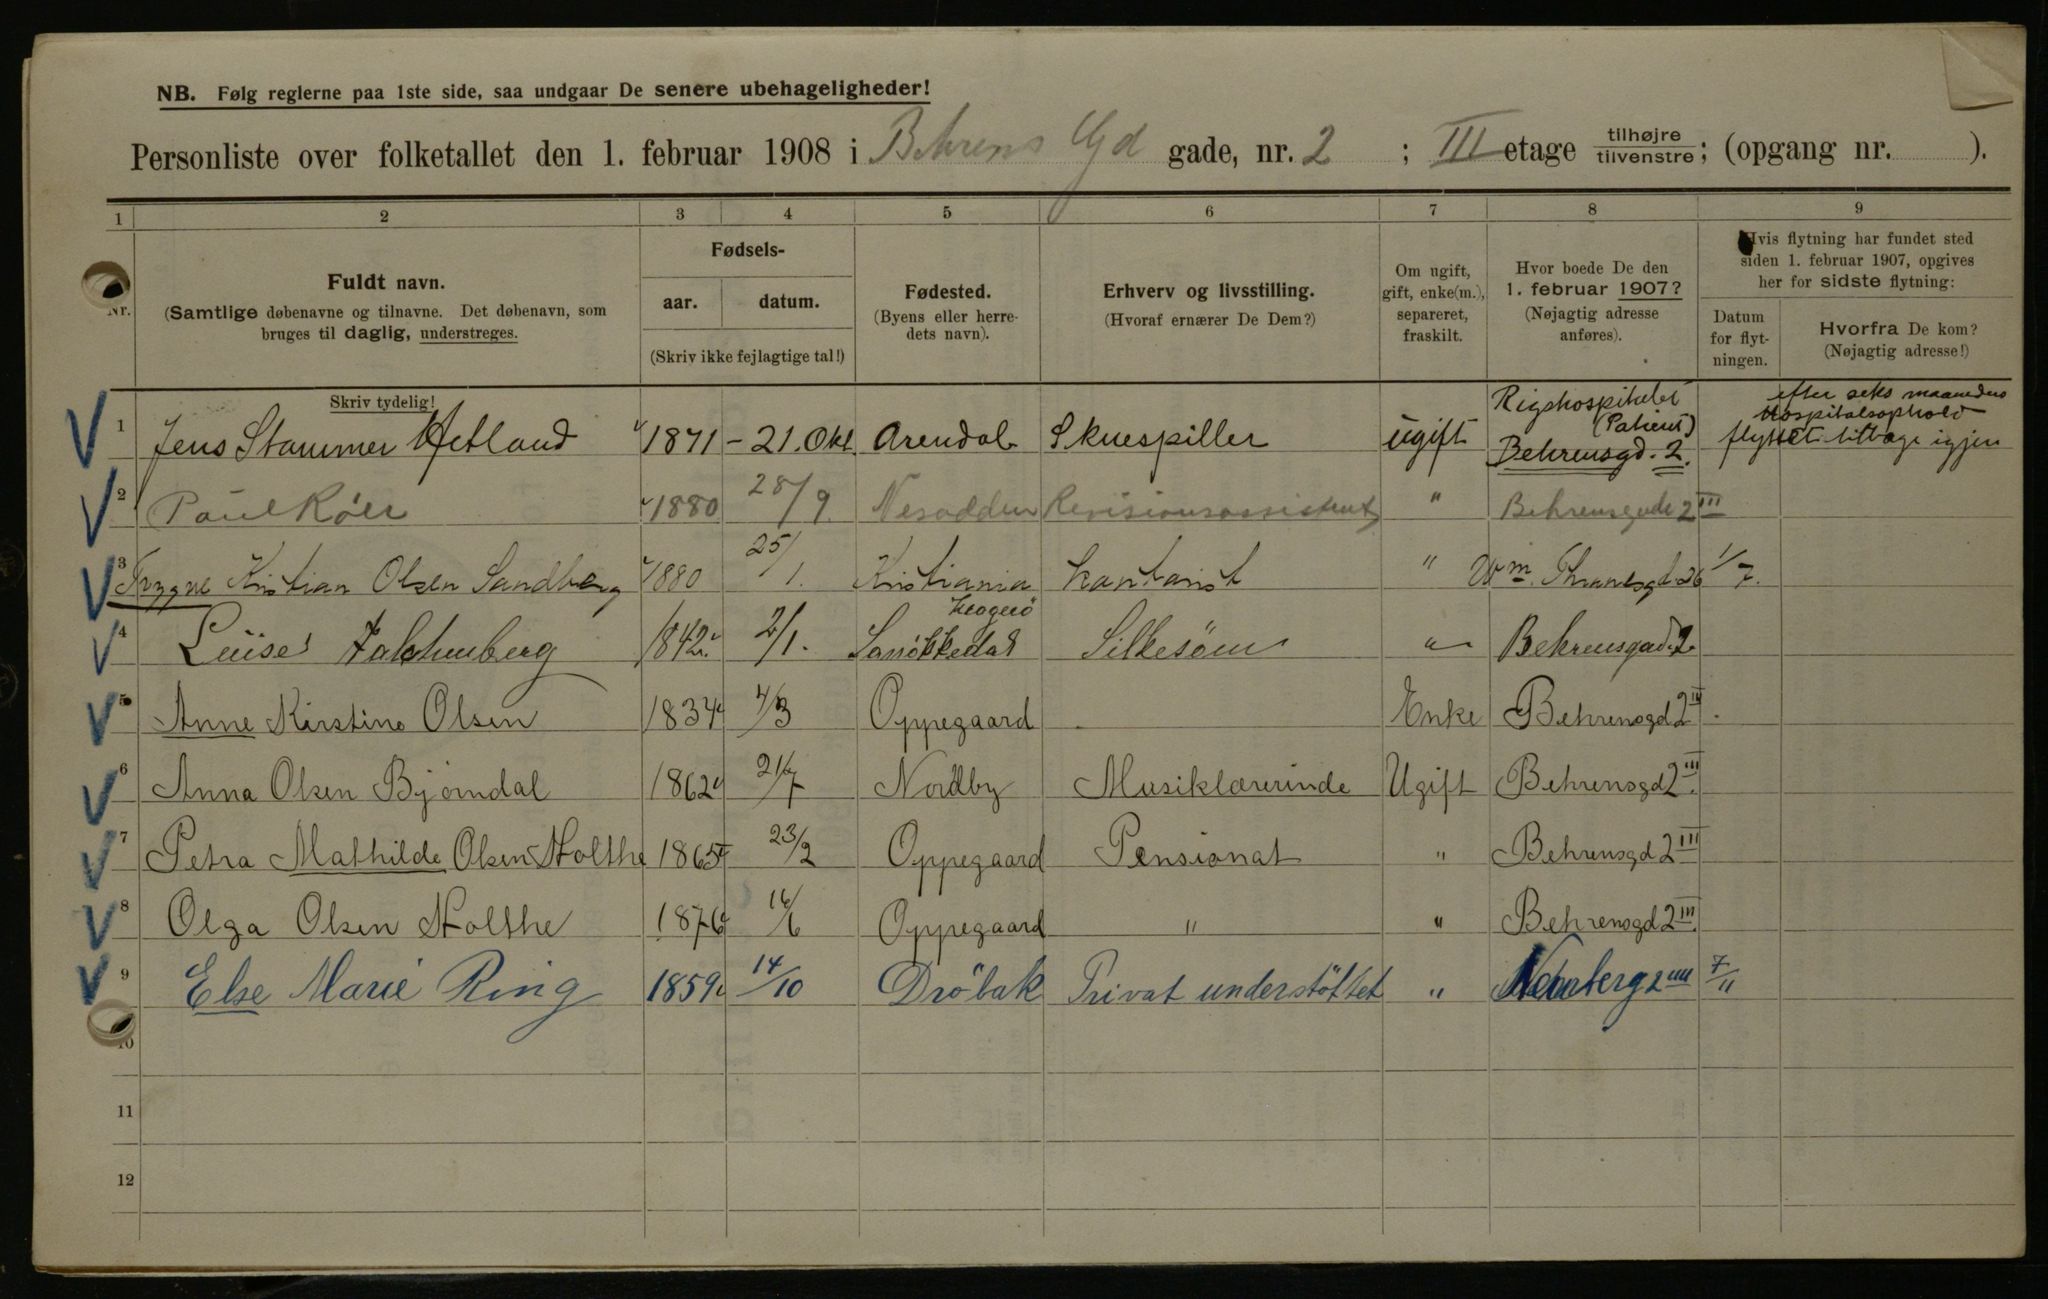 NB. Følg reglerne paa 1ste side, saa undgaar De senere ubehageligheder!
Personliste over folketallet den 1. februar 1908 i Behrens Gd gade, nr. 2 ; III etage tilhøjre/tilvenstre; (opgang nr. ).
1 2 3 4 5 6 7 8 9
Nr.
Fuldt navn.
(Samtlige døbenavne og tilnavne. Det døbenavn, som
bruges til daglig, understreges.
Skriv tydelig!
Fødsels-
aar. datum.
(Skriv ikke fejlagtige tal!)
Fødested.
(Byens eller herre-
dets navn).
Erhverv og livsstilling.
(Hvoraf ernærer De Dem?)
Om ugift,
gift, enke(m.),
separeret,
fraskilt.
Hvor boede De den
1. februar 1907?
(Nøjagtig adresse
anføres).
Hvis flytning har fundet sted
siden 1. februar 1907, opgives
her for sidste flytning:
Datum
for flyt-
ningen.
Hvorfra De kom?
(Nøjagtig adresse!)
Rigshospitalet efter seks maaneders
(Patient) Hospitalsophold
1 Jens Stammer Hetland 1871 - 21. Okt. Arendal Skuespiller ugift Behrensgd. 2. flyttet tilbage igjen
2 Paul 1880 28/9. Nesodden Revisionsassistent " Behrensgade 2 III
3 Trygve Kristian Olsen Sandberg 1880 25/1. Kristiania Kontorist " Wm. Thranesgt. 26 1/7.
4 Luise 1842 2/1. Sannikedal Silkesøm " Behrensgad. 2.
5 Anne Kirstine Olsen 1834 4/3 Oppegaard Enke Behrensgd 2 III
6 Anna Olsen Bjørndal 1862 21/7 Nordby Musiklærerinde Ugift Behrensgd 2 III.
7 Petra Mathilde Olsen Holthe 1865 23/2 Oppegaard Pensionat " Behrensgd 2 III
8 Olga Olsen Holthe 1876 16/6 Oppegaard " " Behrensgd 2 III.
9 Else Marie Ring 1859 14/10 Dröbak Privat understöttet " 7/11
10
11
12